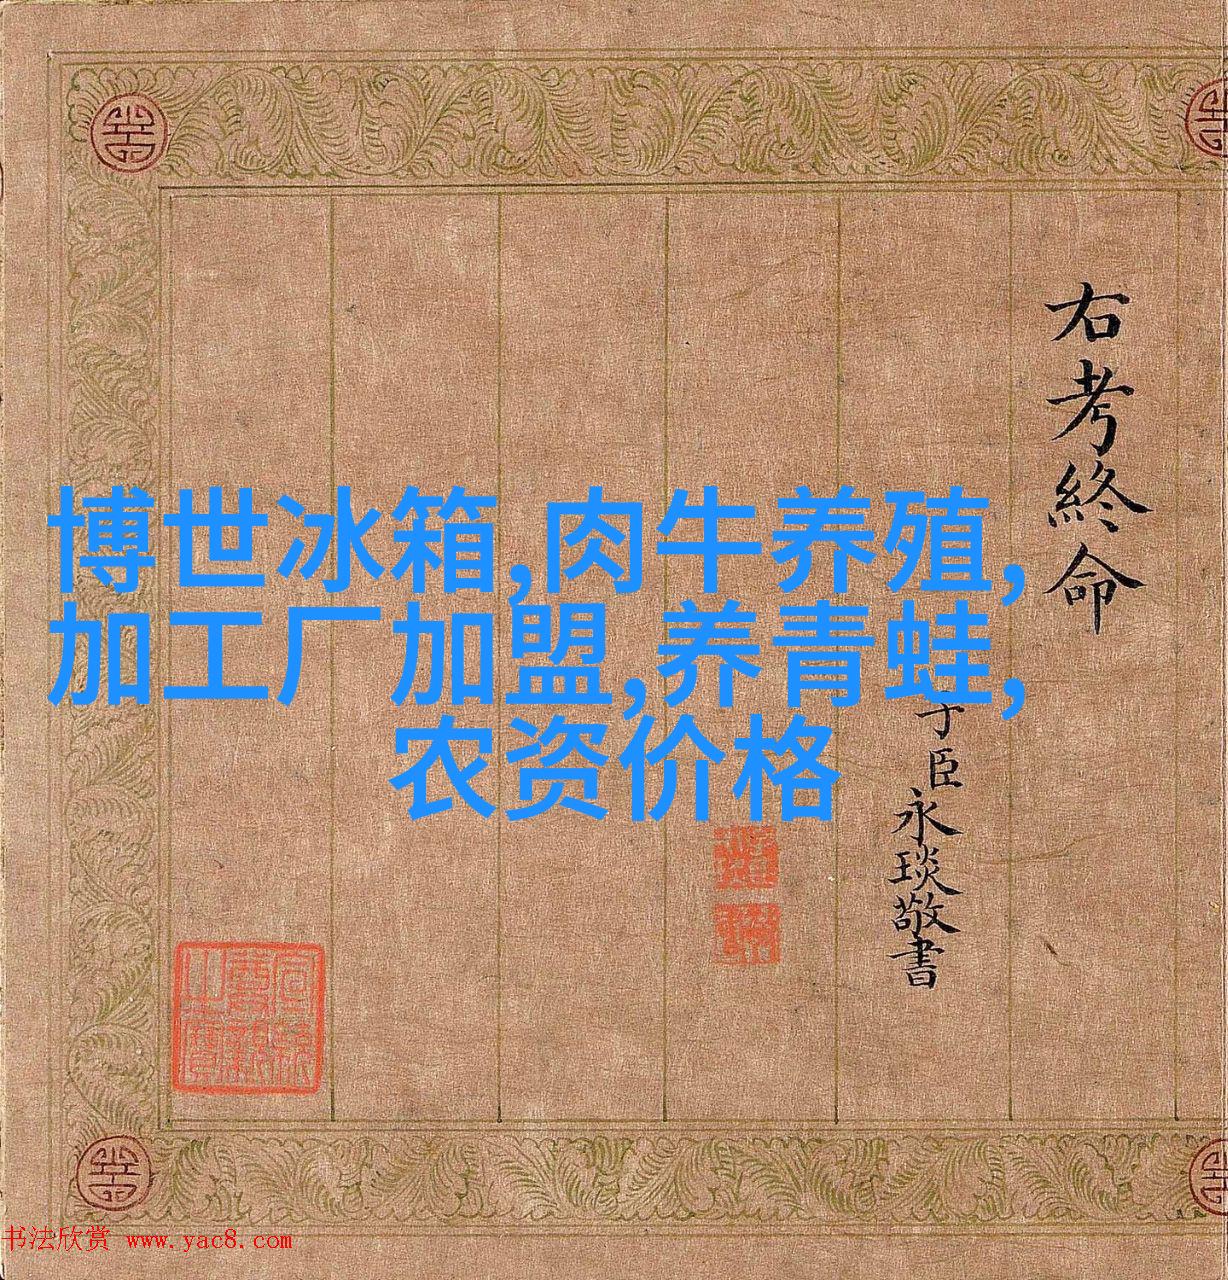 右考終命
子臣永琰敬書
博世冰箱,肉牛养殖,
加工厂加盟,养青蛙,
农资价格
书法欣赏 www.yac8.com